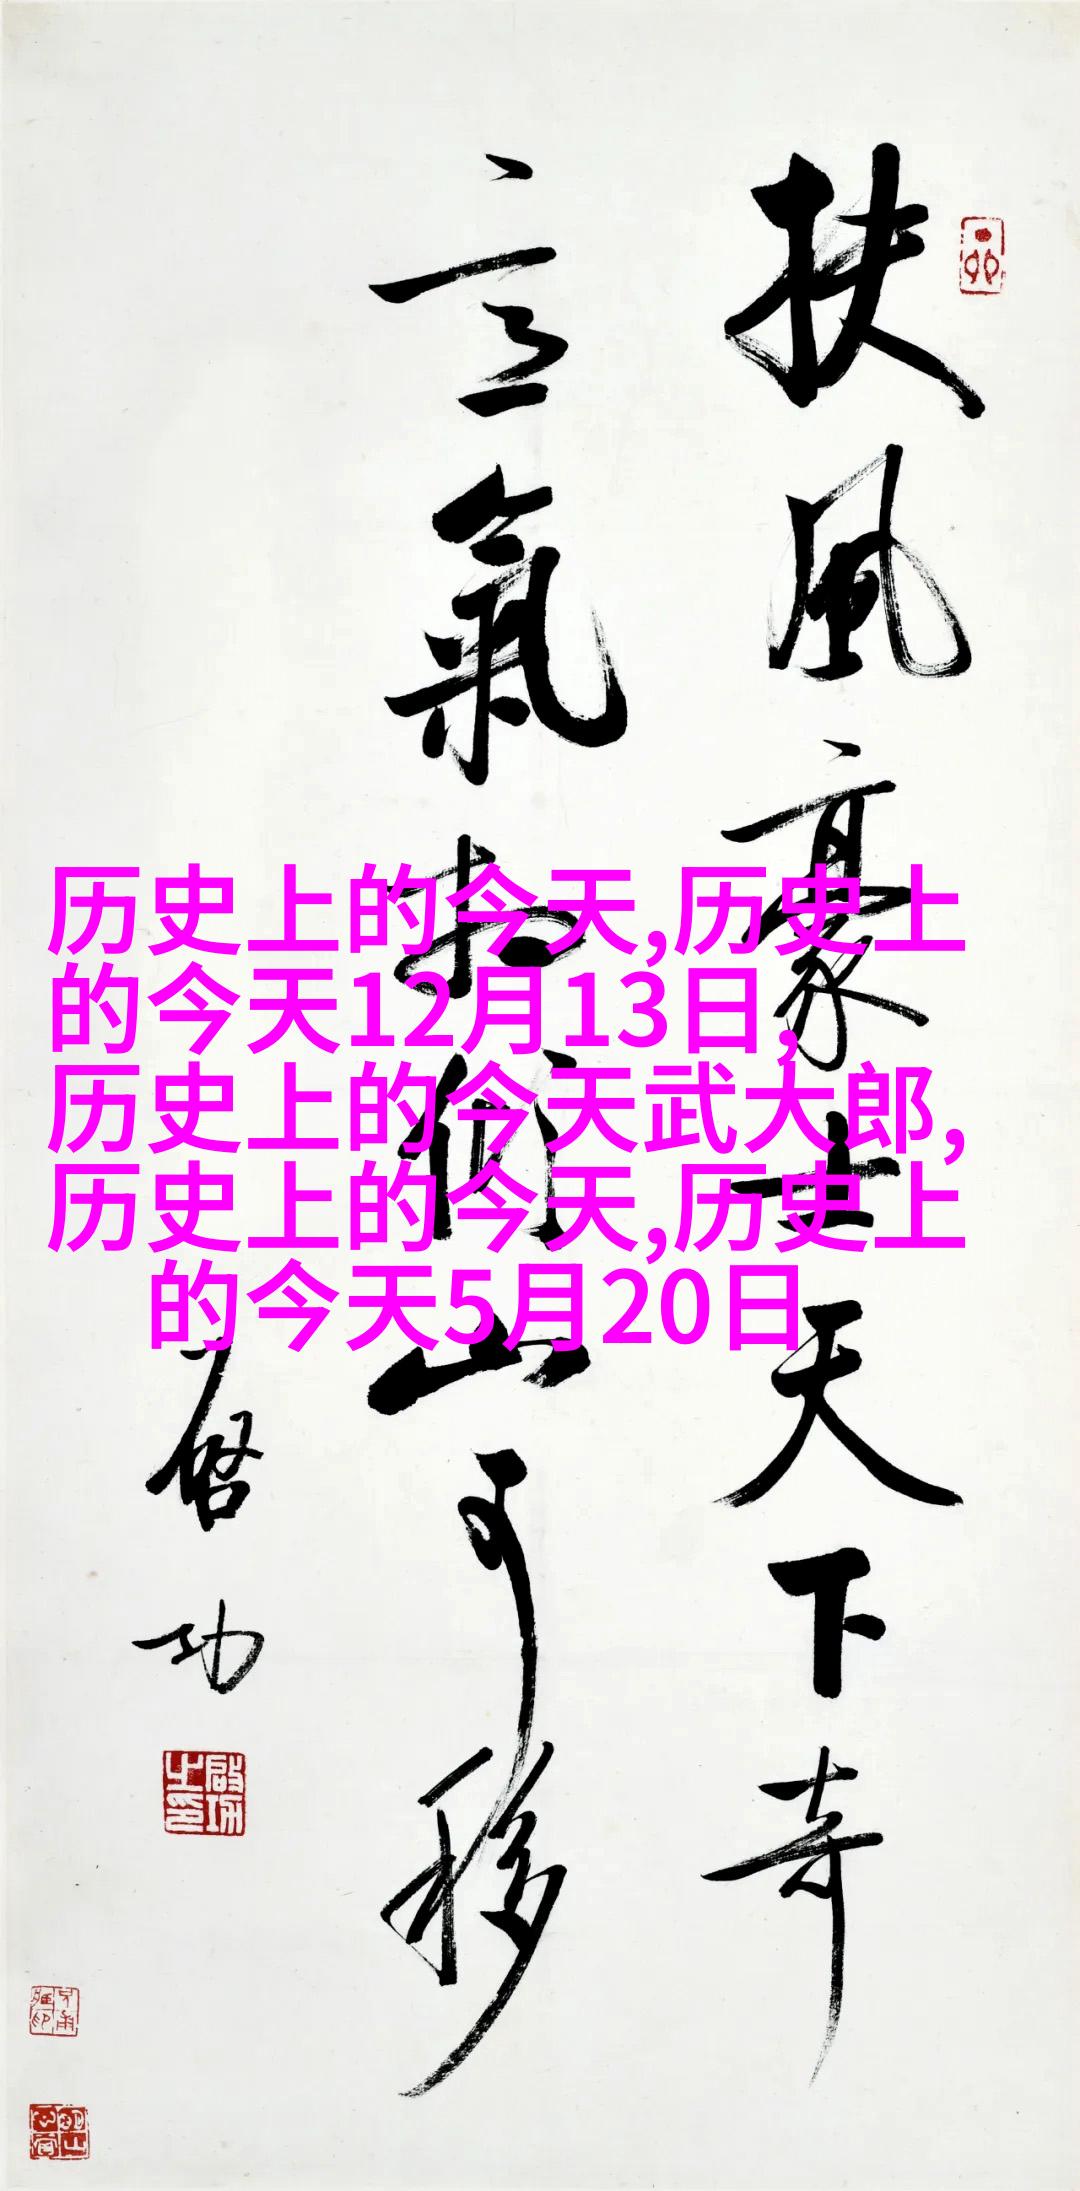 扶風豪士天下奇
意氣相傾山可移
啓功
啓功之印
历史上的今天,历史上
的今天12月13日,
历史上的今天武大郎,
历史上的今天,历史上
的今天5月20日